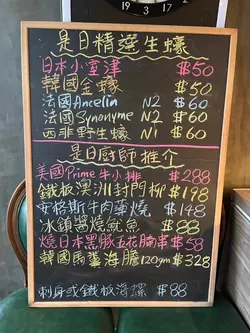 19 3 17
是日精選生蠔
日本小空津 $50
韓國金蠔 $50
法國Ancelin N2 $60
法國Synonyme N2 $60
西非野生蠔 N1 $60
是日廚師推介
美國Prime牛小排 $288
鐵板澳洲封門柳 $198
安格斯牛肉薄燒 $148
冰鎮醬燒魷魚 $88
燒日本黑豚五花腩串 $58
韓國馬糞海膽120gm $328
刺身或鐵板海螺 $88